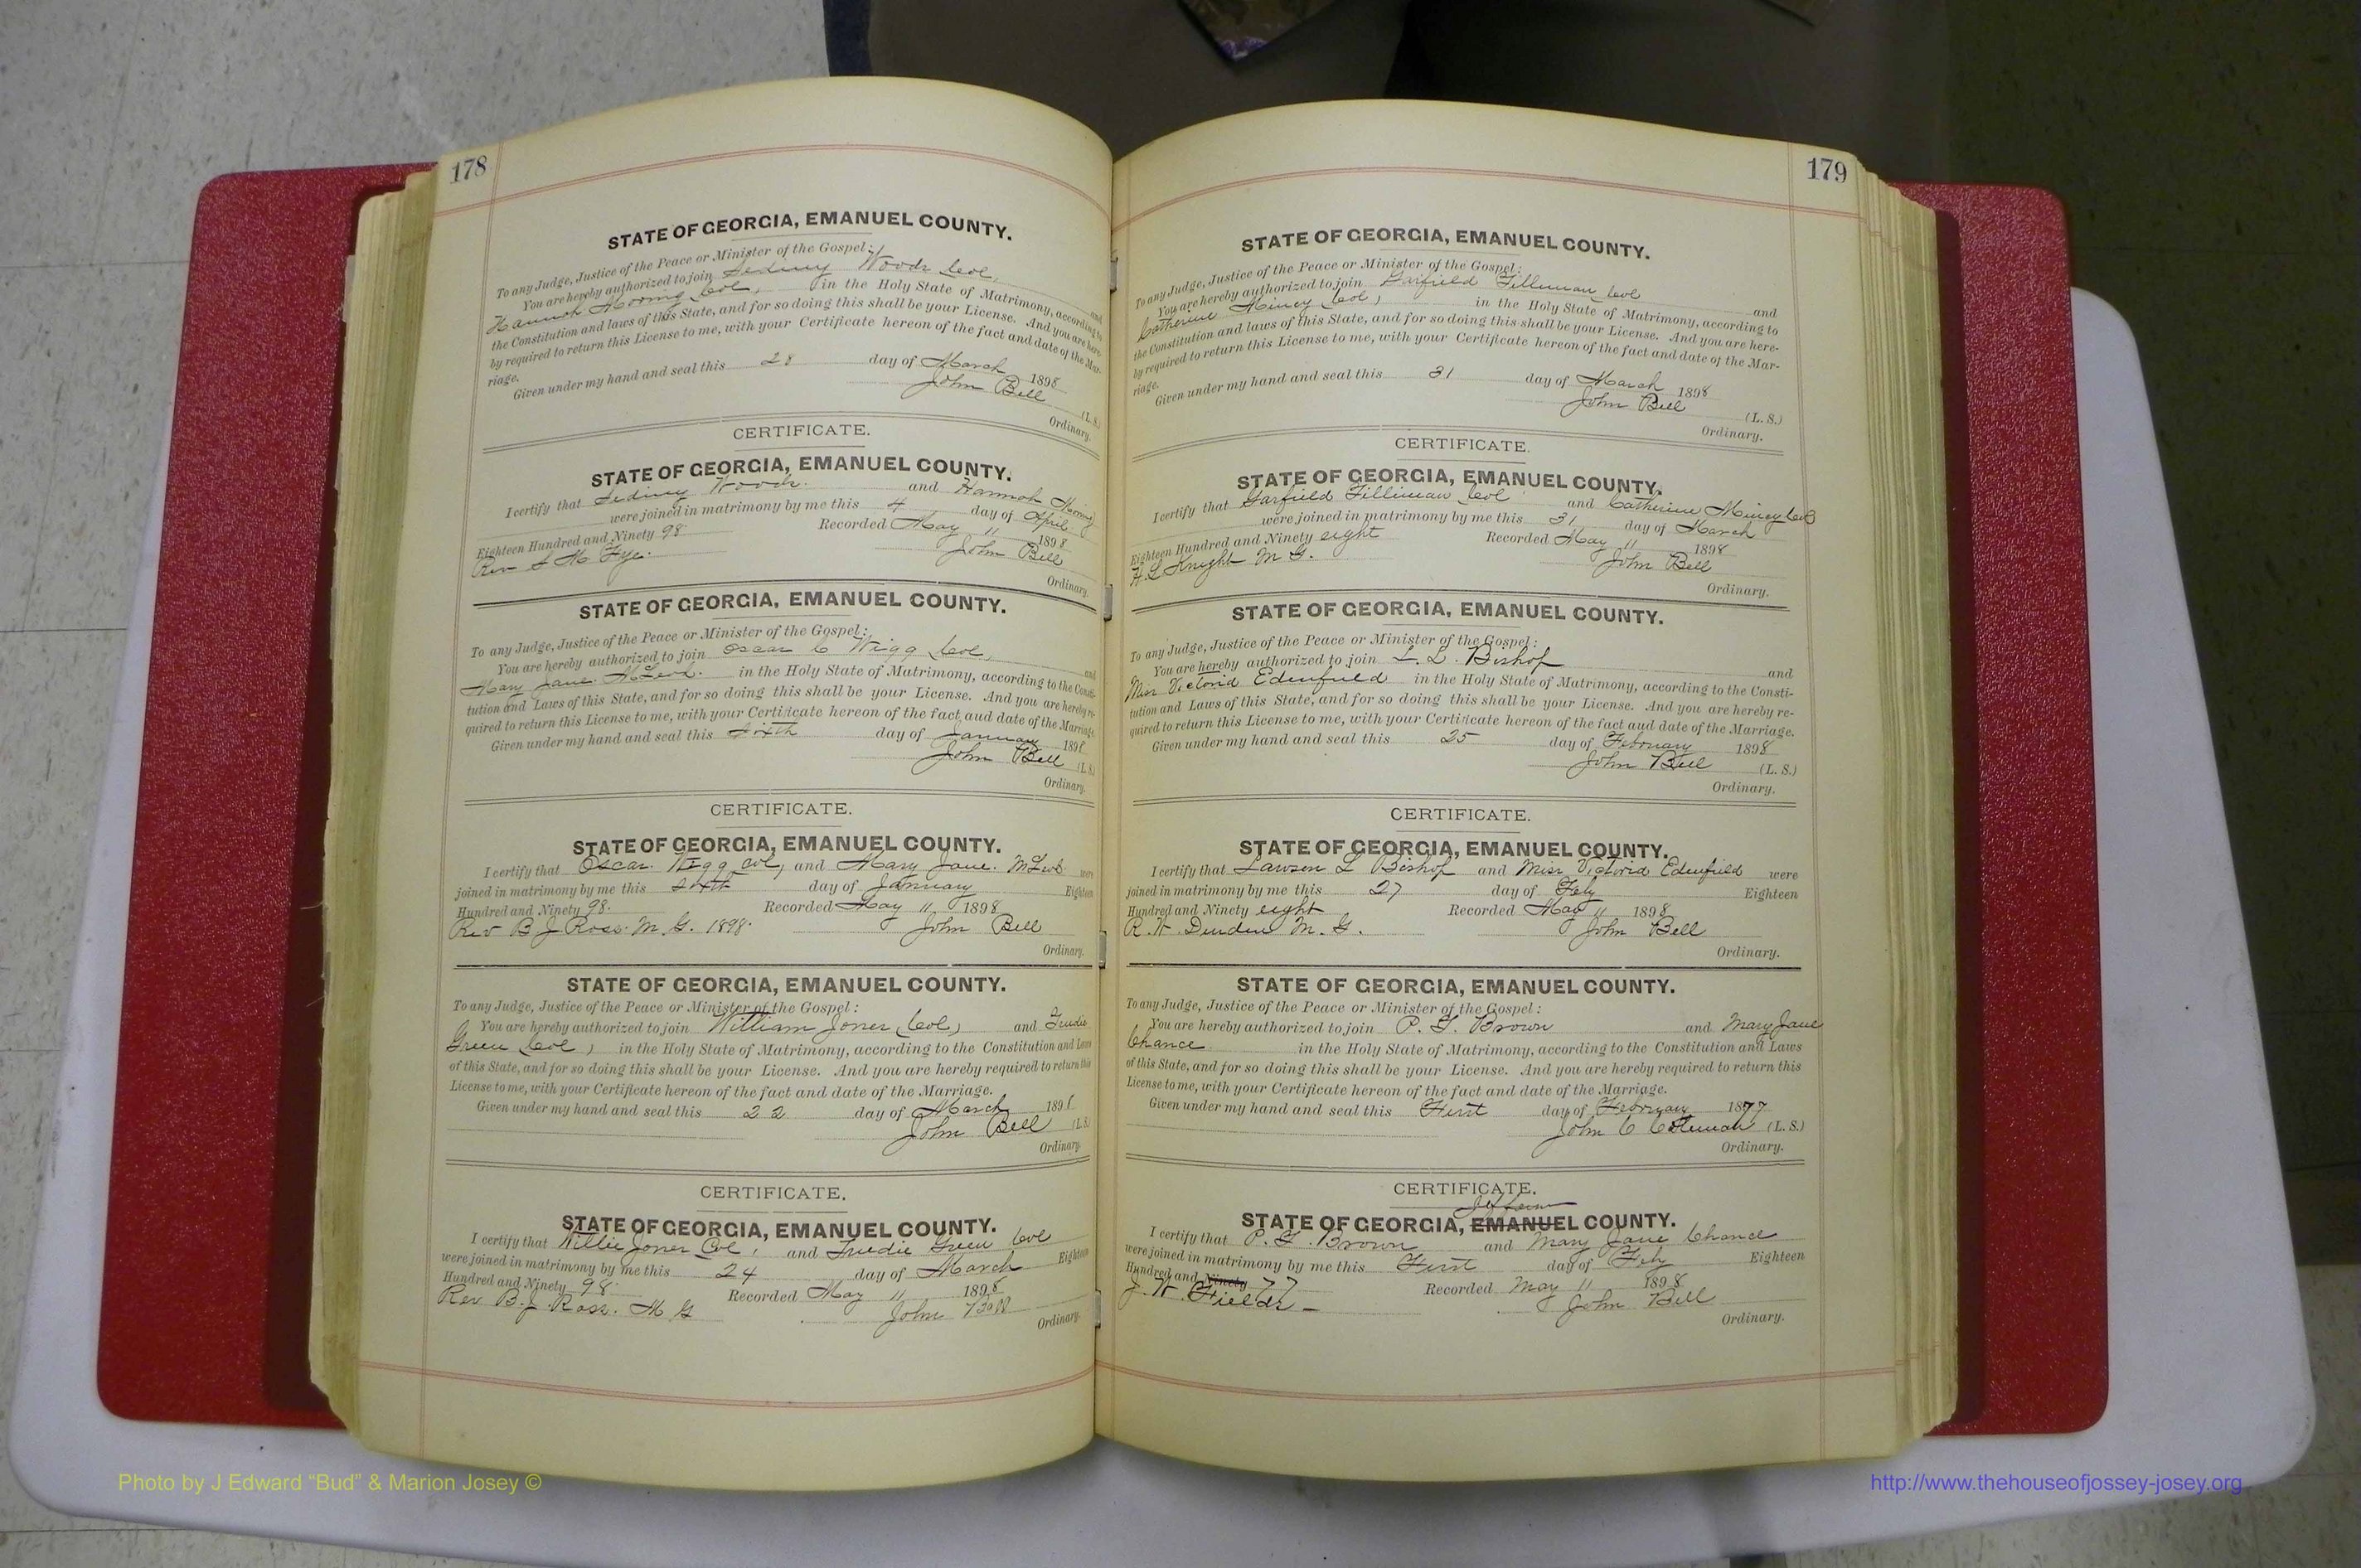 178
STATE OF GEORGIA, EMANUEL COUNTY.
To any Judge, Justice of the Peace or Minister of the Gospel:
You are hereby authorized to join Woods Col, and
Hannah Col, in the Holy State of Matrimony, according to
the Constitution and laws of this State, and for so doing this shall be your License. And you are here-
by required to return this License to me, with your Certificate hereon of the fact and date of the Mar-
riage.
Given under my hand and seal this 28 day of March 1898
John Bell (L. S.)
Ordinary.
CERTIFICATE.
STATE OF GEORGIA, EMANUEL COUNTY.
I certify that Woods and Hannah
were joined in matrimony by me this 4 day of April
Eighteen Hundred and Ninety 98 Recorded May 11 1898
Rev S M Frye. John Bell
Ordinary.
STATE OF GEORGIA, EMANUEL COUNTY.
To any Judge, Justice of the Peace or Minister of the Gospel:
You are hereby authorized to join Oscar C Wigg Col, and
Mary Jane McLeod. in the Holy State of Matrimony, according to the Consti-
tution and Laws of this State, and for so doing this shall be your License. And you are hereby re-
quired to return this License to me, with your Certificate hereon of the fact and date of the Marriage.
Given under my hand and seal this Sixth day of January 1898
John Bell (L. S.)
Ordinary.
CERTIFICATE.
STATE OF GEORGIA, EMANUEL COUNTY.
I certify that Oscar. Wigg Col, and Mary Jane. McLeod were
joined in matrimony by me this Sixth day of January Eighteen
Hundred and Ninety 98. Recorded May 11 1898
Rev B J Ross. M. G. 1898. John Bell
Ordinary.
STATE OF GEORGIA, EMANUEL COUNTY.
To any Judge, Justice of the Peace or Minister of the Gospel:
You are hereby authorized to join William Jones Col, and
Green Col, in the Holy State of Matrimony, according to the Constitution and Laws
of this State, and for so doing this shall be your License. And you are hereby required to return this
License to me, with your Certificate hereon of the fact and date of the Marriage.
Given under my hand and seal this 22 day of March 1898
John Bell (L. S.)
Ordinary.
CERTIFICATE.
STATE OF GEORGIA, EMANUEL COUNTY.
I certify that Willie Jones Col, and Green Col
were joined in matrimony by me this 24 day of March Eighteen
Hundred and Ninety 98. Recorded May 11 1898
Rev B. J. Ross. M G John Bell
Ordinary.
179
STATE OF GEORGIA, EMANUEL COUNTY.
To any Judge, Justice of the Peace or Minister of the Gospel:
You are hereby authorized to join Garfield Tillman Col and
Catherine Mincy Col, in the Holy State of Matrimony, according to
the Constitution and laws of this State, and for so doing this shall be your License. And you are here-
by required to return this License to me, with your Certificate hereon of the fact and date of the Mar-
riage.
Given under my hand and seal this 31 day of March 1898
John Bell (L. S.)
Ordinary.
CERTIFICATE.
STATE OF GEORGIA, EMANUEL COUNTY.
I certify that Garfield Tillman Col and Catherine Mincy Col
were joined in matrimony by me this 31 day of March
Eighteen Hundred and Ninety eight Recorded May 11 1898
H. L Knight M G. John Bell
Ordinary.
STATE OF GEORGIA, EMANUEL COUNTY.
To any Judge, Justice of the Peace or Minister of the Gospel:
You are hereby authorized to join L. L. Bishop and
Miss Victoria Edenfield in the Holy State of Matrimony, according to the Consti-
tution and Laws of this State, and for so doing this shall be your License. And you are hereby re-
quired to return this License to me, with your Certificate hereon of the fact and date of the Marriage.
Given under my hand and seal this 25 day of February 1898
John Bell (L. S.)
Ordinary.
CERTIFICATE.
STATE OF GEORGIA, EMANUEL COUNTY.
I certify that Lawson L Bishop and Miss Victoria Edenfield were
joined in matrimony by me this 27 day of Feby Eighteen
Hundred and Ninety eight Recorded May 11 1898
R. W. Durden M. G. John Bell
Ordinary.
STATE OF GEORGIA, EMANUEL COUNTY.
To any Judge, Justice of the Peace or Minister of the Gospel:
You are hereby authorized to join P. T. Brown and Mary Jane
Chance in the Holy State of Matrimony, according to the Constitution and Laws
of this State, and for so doing this shall be your License. And you are hereby required to return this
License to me, with your Certificate hereon of the fact and date of the Marriage.
Given under my hand and seal this First day of February 1877
John C Coleman (L. S.)
Ordinary.
CERTIFICATE.
Jefferson
STATE OF GEORGIA, EMANUEL COUNTY.
I certify that P. T. Brown and Mary Jane Chance
were joined in matrimony by me this First day of Feby Eighteen
Hundred and Ninety 77 Recorded May 11 1898
J. W. Fields - John Bell
Ordinary.
Photo by J Edward “Bud” & Marion Josey ©
http://www.thehouseofjossey-josey.org